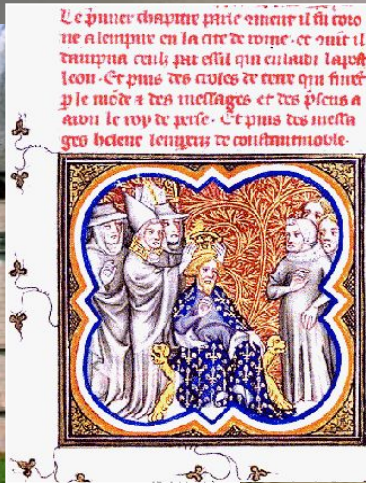 Le p̃mier chapitre parle cõment il fu coro
ne a lempire en la cite de rome. et cõment il
dampna ceulx par essil qui en laidi lapost
leon. Et puis des croles de terre qui furẽt
p le mõde ⁊ des messages et des p̃sens a
aron le roy de perse. Et puis des messa
ges helene lemperis de constantinoble.